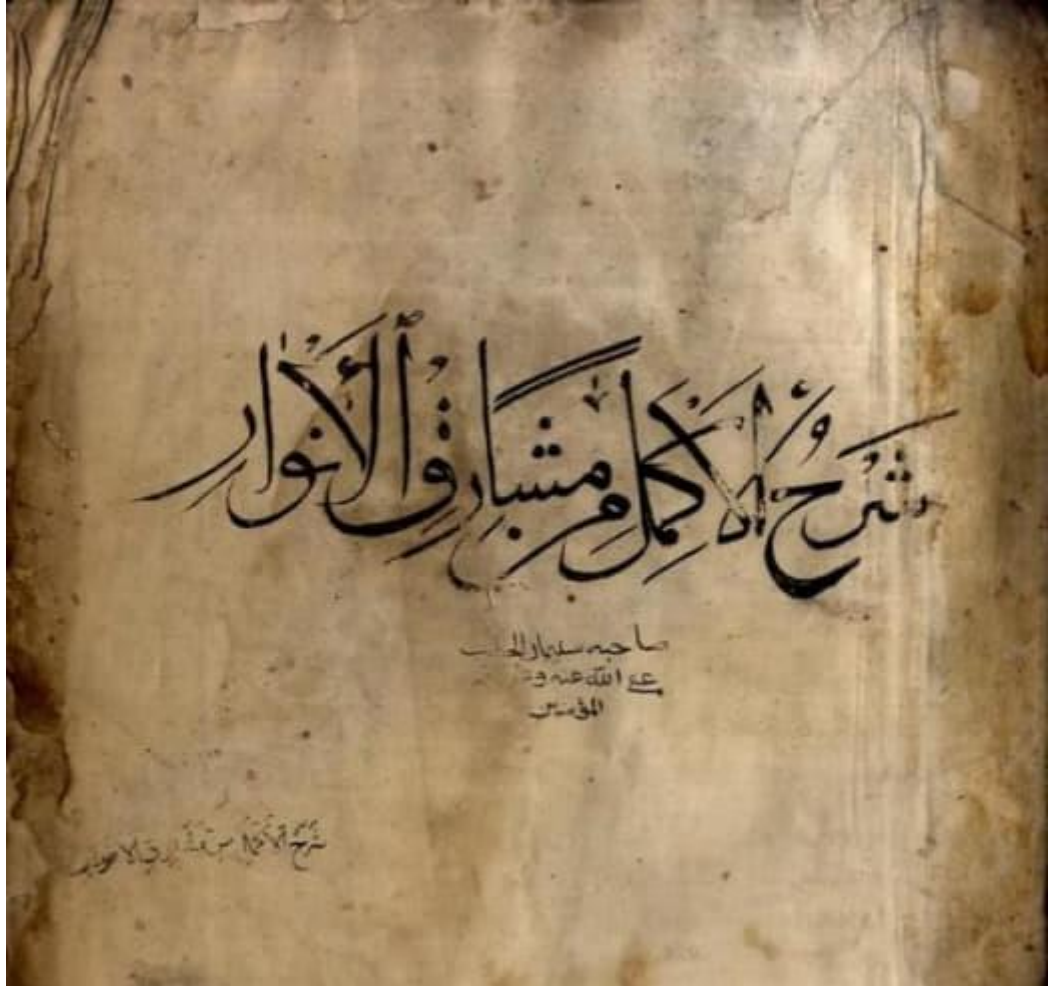 شرح الأكمل من مشارق الأنوار
صاحبه سليمان
عفى الله عنه
المؤمنين
شرح الاكمل من مشارق الانوار